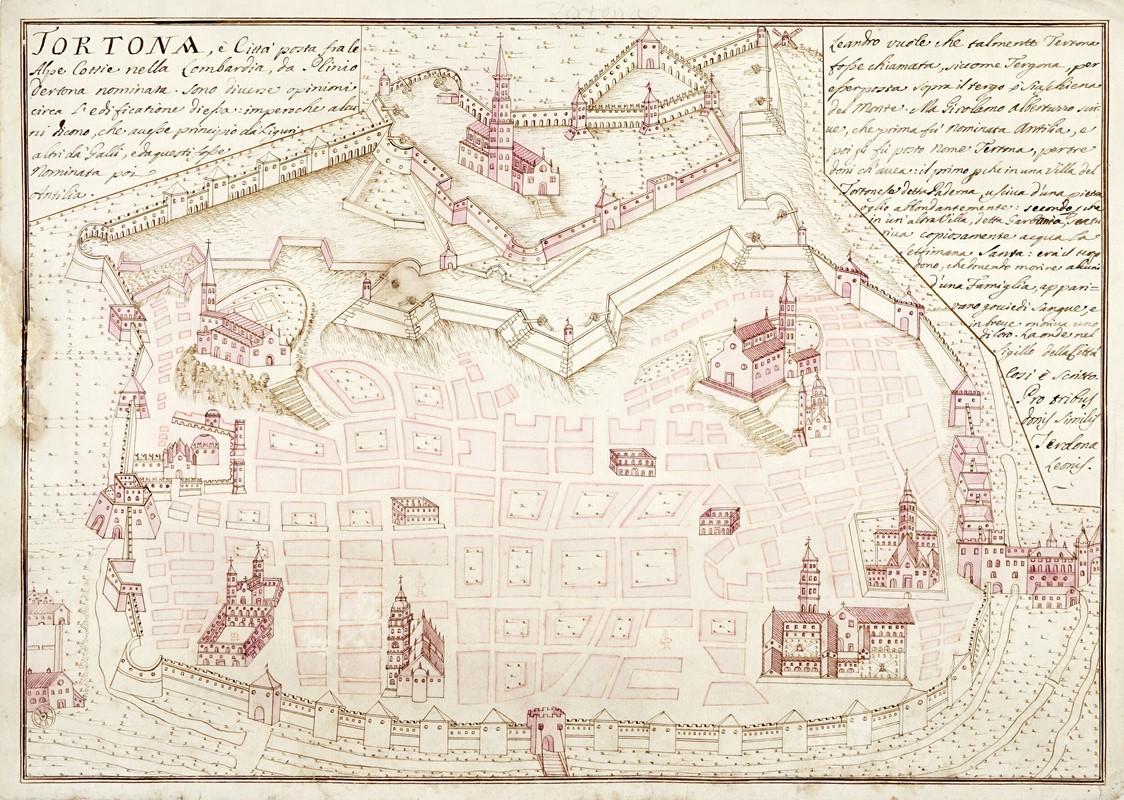 Tortona
TORTONA, è Città posta fra le
Alpe Cottie nella Lombardia, da Plinio
Dertona nominata. Sono diverse opinioni
circa l'edificatione diessa: imperoche alcu
ni dicono, che auesse principio da Liguri
altri da Galli, e da questi fosse
Nominata poi
Antilia
Leandro vuole che talmente Tertona
fosse chiamata, sicome Tergona, per
esser posta sopra il tergo ò Schiena
del Monte. Ma Girolamo Alberturro scri
ue, che prima fù Nominata Antilia, e
poi gli fù posto Nome Tertona, per tre
doni ch'auea: il primo pche in una Villa del
Tortonese detta Paderna, usciua d'una pietra
oglio abbondantemente: secondo, che
in un'altra Villa, detta
riua copiosamente acqua la
settimana Santa: era il terzo
dono, che douendo morire alcuni
d'una famiglia, appari-
uano goccie di Sangue, e
in breue moriua uno
di loro. La onde nel
Sigillo della Città
Cosi è Scritto
Pro tribus
donis Similis
Terdona
Leonis.